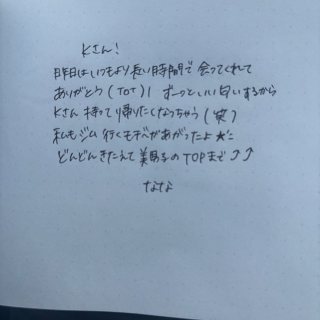 Kさん!
昨日はいつもより長い時間で会ってくれて
ありがとう(ToT)! ずーっといい匂いするから
Kさん持って帰りたくなっちゃう(笑)
私もジム行くモチベがあがったよ★ﾐ
どんどんきたえて美男子のTOPまで⤴⤴
なな